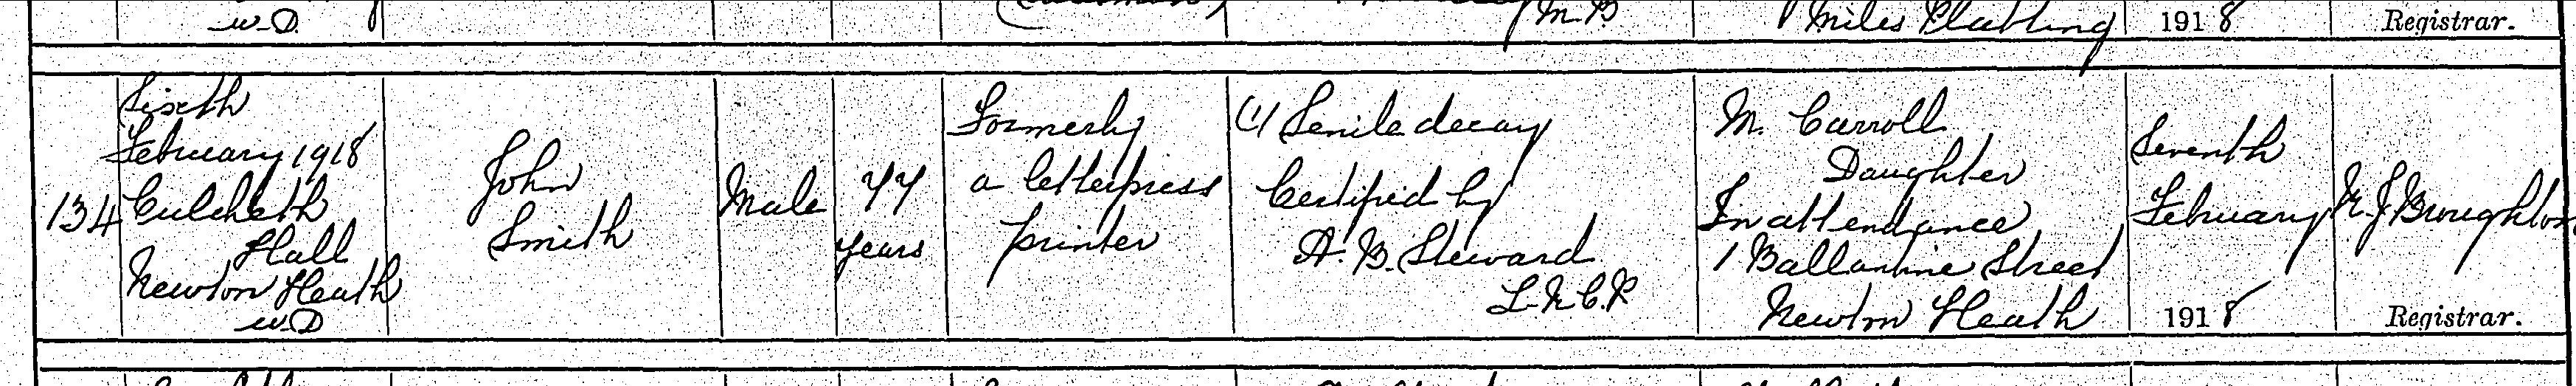 W.D. M.B Miles Platting 1918 Registrar.
134
Sixth
February 1918
Culcheth
Hall
Newton Heath
W.D
John
Smith
Male
77
years
Formerly
a letterpress
printer
(1) Senile decay
Certified by
A. B. Steward
L.R.C.P.
M. Carroll
Daughter
In attendance
1 Ballantine Street
Newton Heath
Seventh
February
1918
Broughton
Registrar.